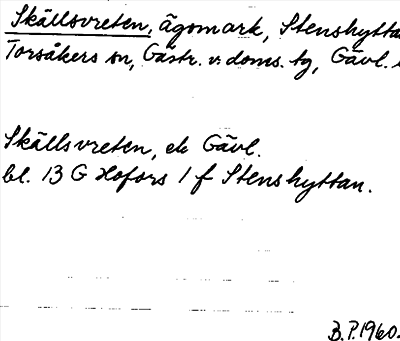 Skällsvreten, ägomark, Stenshyttan
Torsåkers sn, Gästr. v. doms. tg, Gävl.
Skällsvreten, ek Gävl.
bl. 13 G Hofors 1 f Stenshyttan.
B.P. 1960.